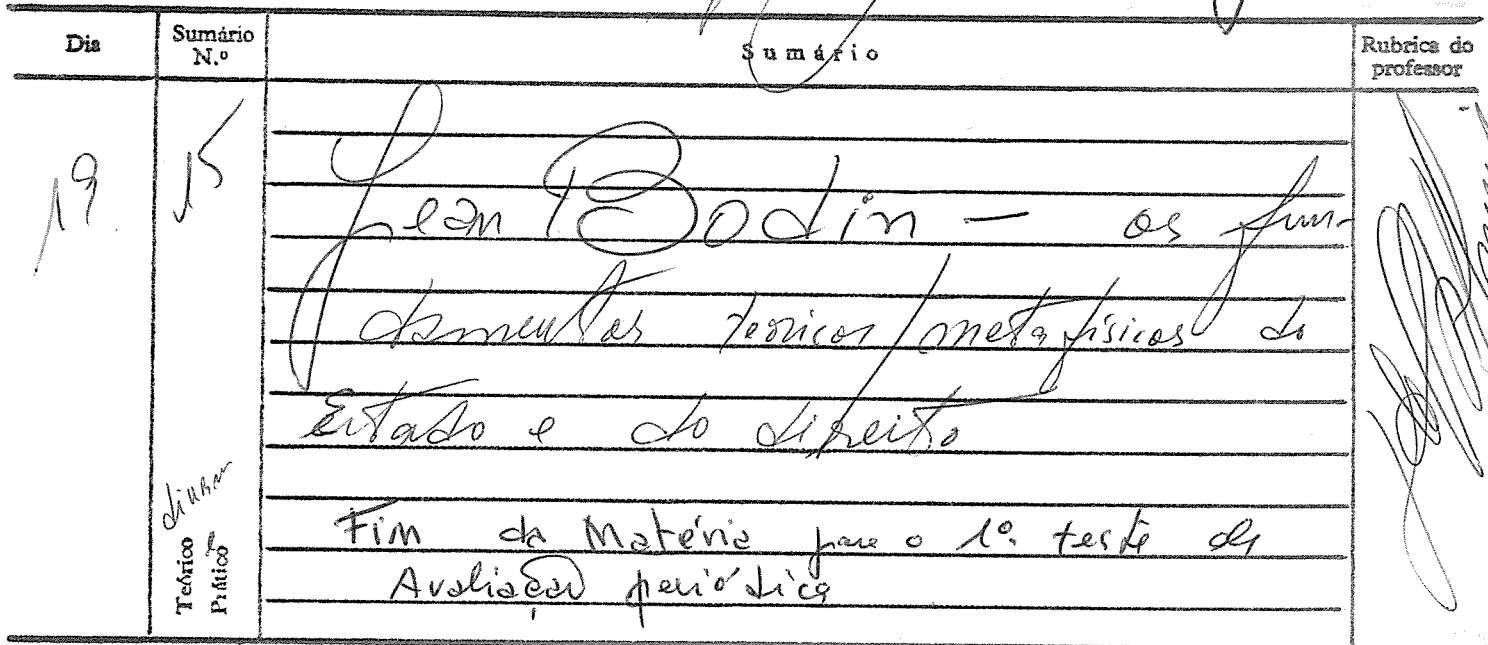 Dia
Sumário N.º
Sumário
Rubrica do professor
19
15
Jean Bodin - os fun-
damentos teóricos/metafísicos do
Estado e do direito
Teórico e
Prático
Fim da Matéria para o 1º. teste de
Avaliação periódica